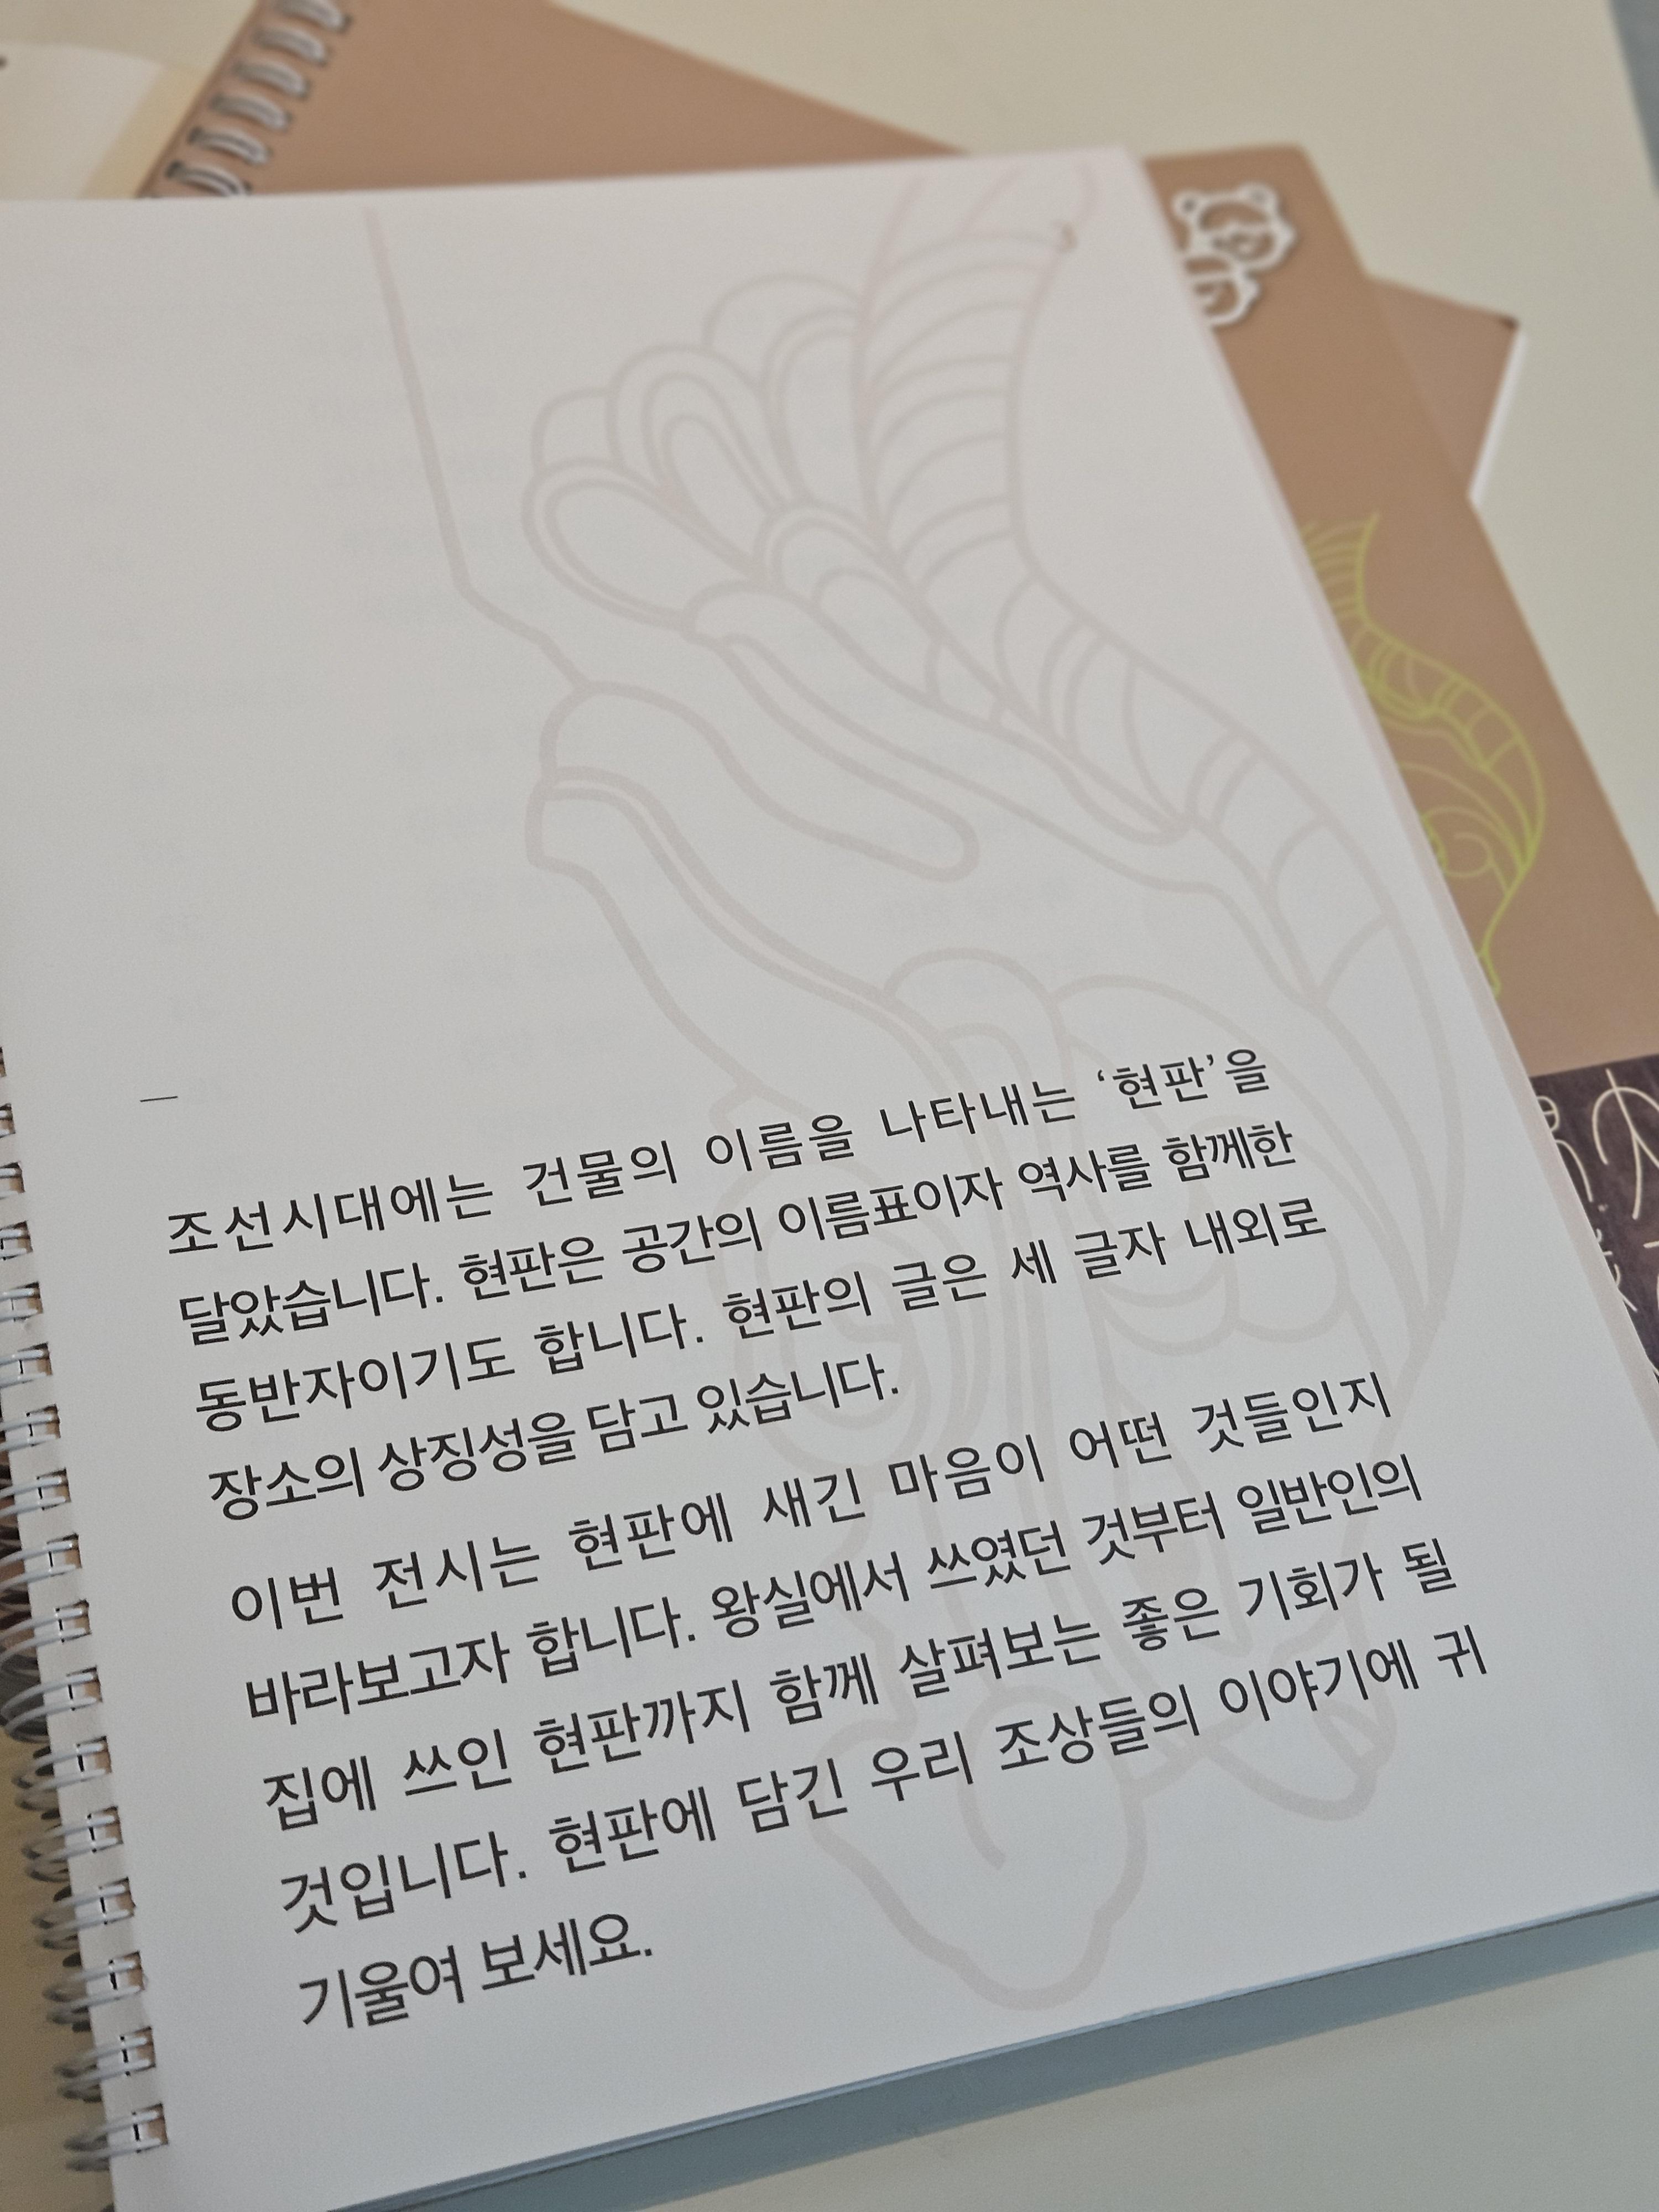 3
조선시대에는 건물의 이름을 나타내는 ‘현판’을
달았습니다. 현판은 공간의 이름표이자 역사를 함께한
동반자이기도 합니다. 현판의 글은 세 글자 내외로
장소의 상징성을 담고 있습니다.
이번 전시는 현판에 새긴 마음이 어떤 것들인지
바라보고자 합니다. 왕실에서 쓰였던 것부터 일반인의
집에 쓰인 현판까지 함께 살펴보는 좋은 기회가 될
것입니다. 현판에 담긴 우리 조상들의 이야기에 귀
기울여 보세요.